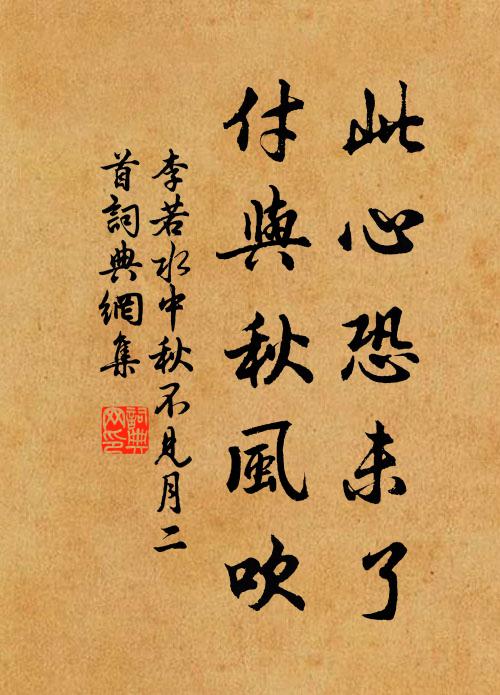 此心恐未了
付與秋風吹
李若水中秋不見月二
首詞典網集
詞典
网印